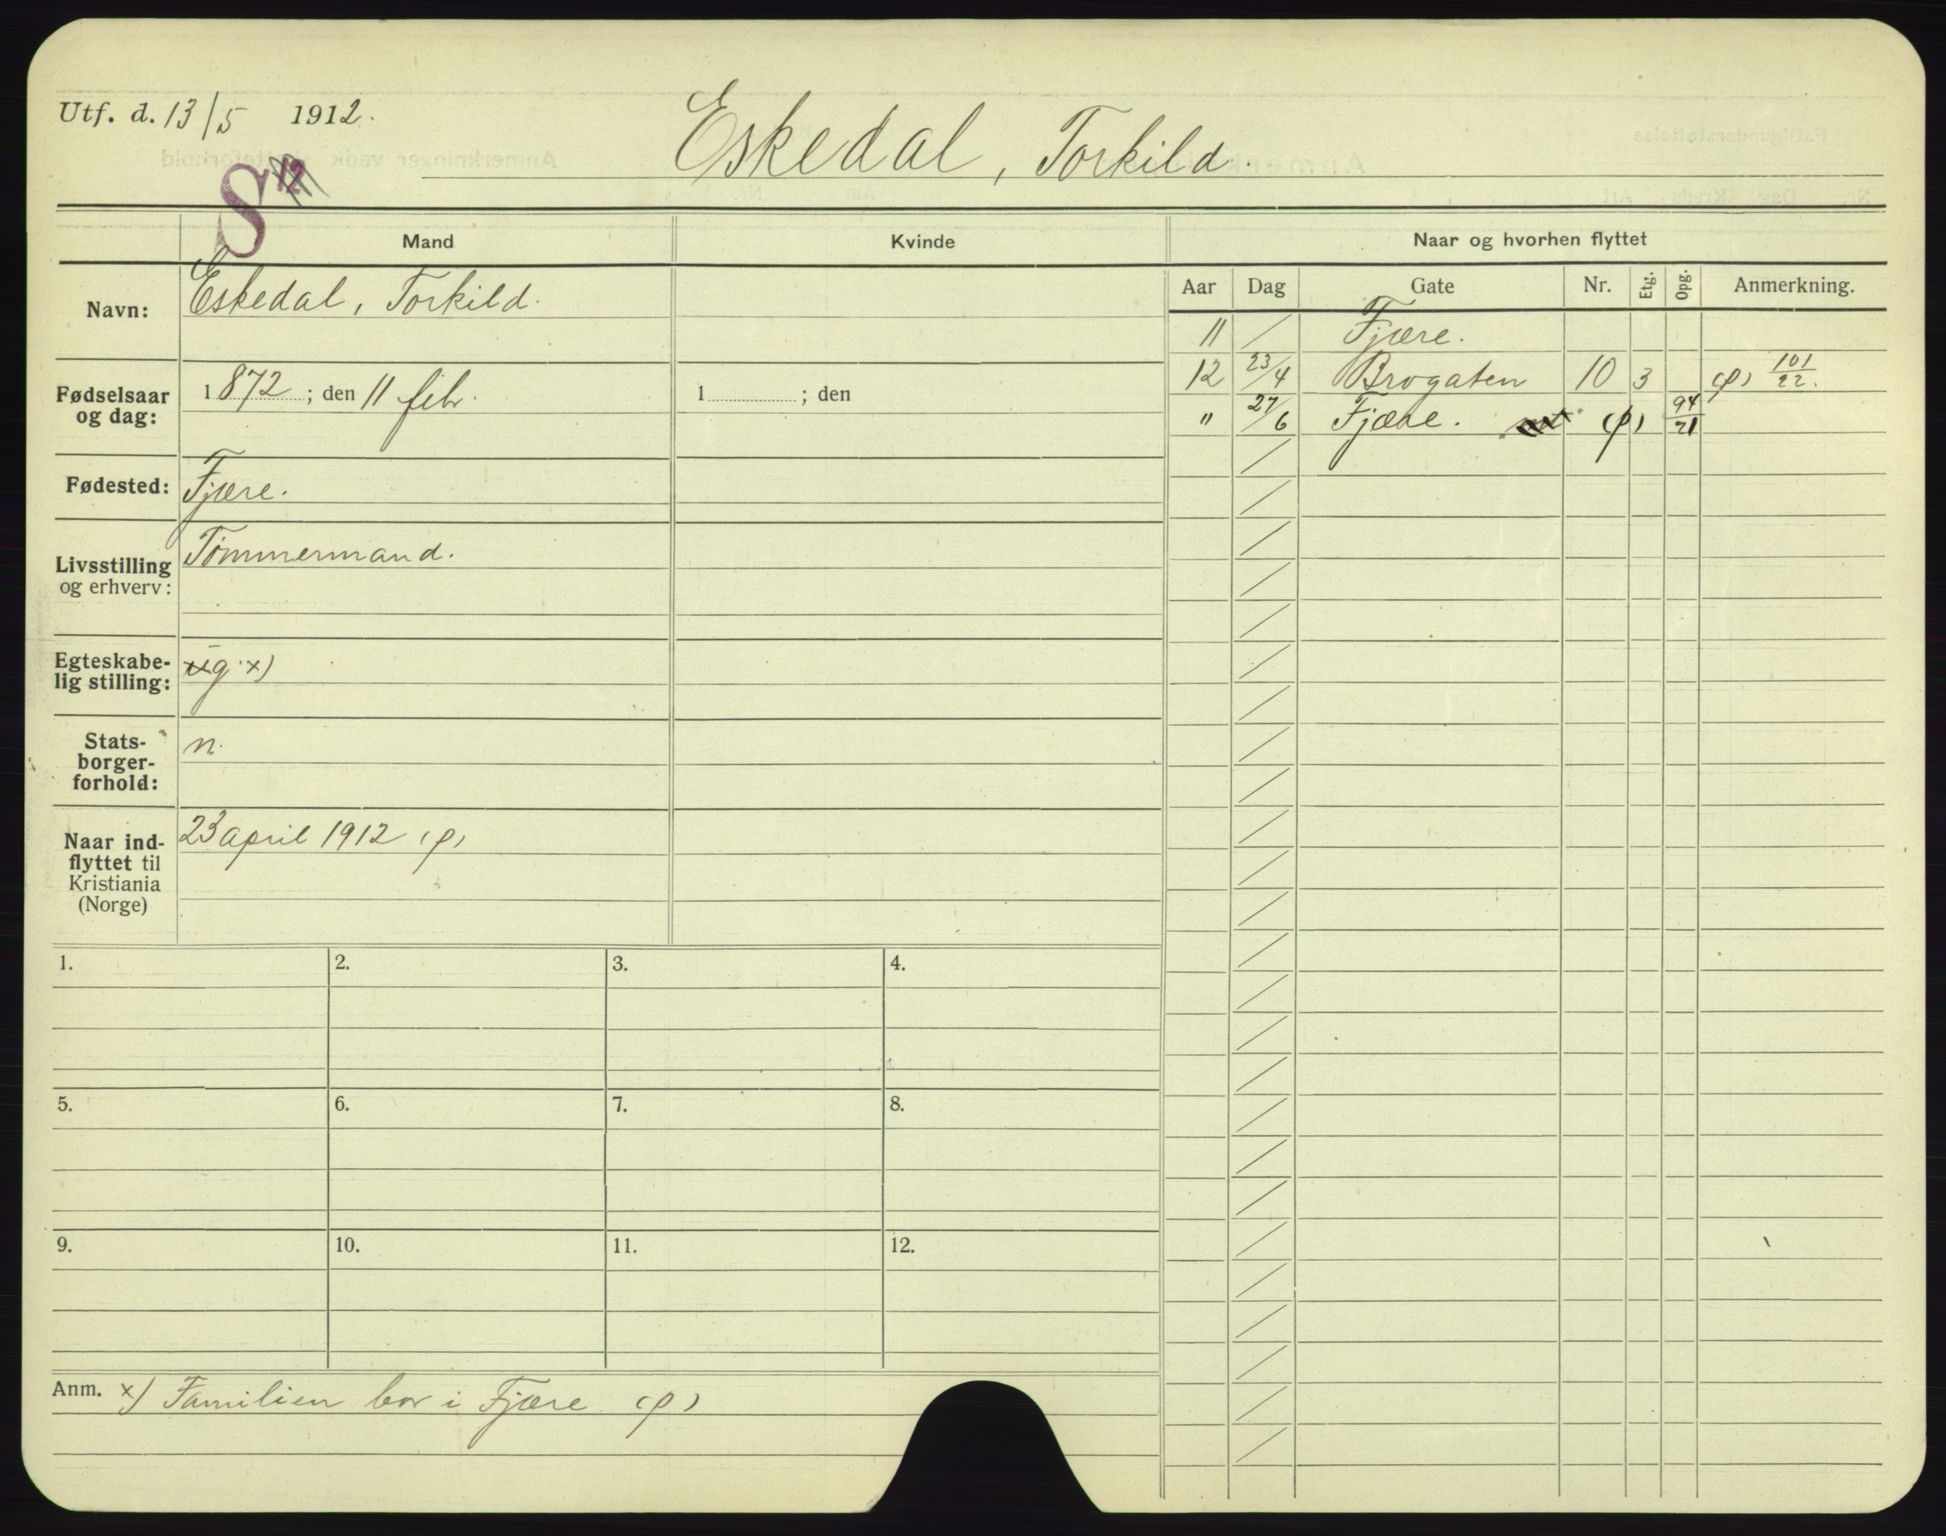 Utf. d. 13/5 1912.
Eskedal, Torkild.
S
Mand
Kvinde
Naar og hvorhen flyttet
Aar Dag Gate Nr. Etg. Opg. Anmerkning.
Navn: Eskedal, Torkild.
11 / Fjære.
12 23/4 Brogaten 10 3 (p) 101/22.
" 27/6 Fjære. (p) 94/21
Fødselsaar og dag: 1872; den 11 febr.
1 ; den
Fødested: Fjære.
Livsstilling og erhverv: Tømmermand.
Egteskabelig stilling: g x)
Statsborgerforhold: n.
Naar indflyttet til Kristiania (Norge) 23 april 1912 (p)
1. 2. 3. 4.
5. 6. 7. 8.
9. 10. 11. 12.
Anm. x) Familien bor i Fjære (p)